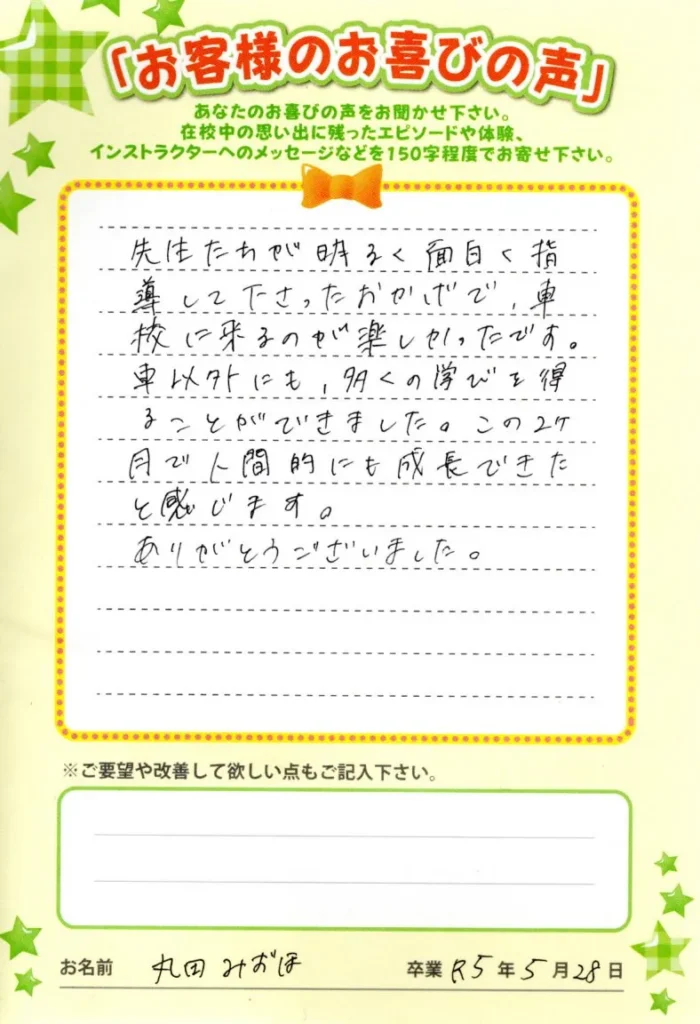 「お客様のお喜びの声」
あなたのお喜びの声をお聞かせ下さい。
在校中の思い出に残ったエピソードや体験、
インストラクターへのメッセージなどを150字程度でお寄せ下さい。
先生たちが明るく面白く指
導して下さったおかげで、車
校に来るのが楽しかったです。
車以外にも、多くの学びを得
ることができました。この2ヶ
月で人間的にも成長できた
と感じます。
ありがとうございました。
※ご要望や改善して欲しい点もご記入下さい。
お名前 丸田みおほ 卒業 R5年5月28日